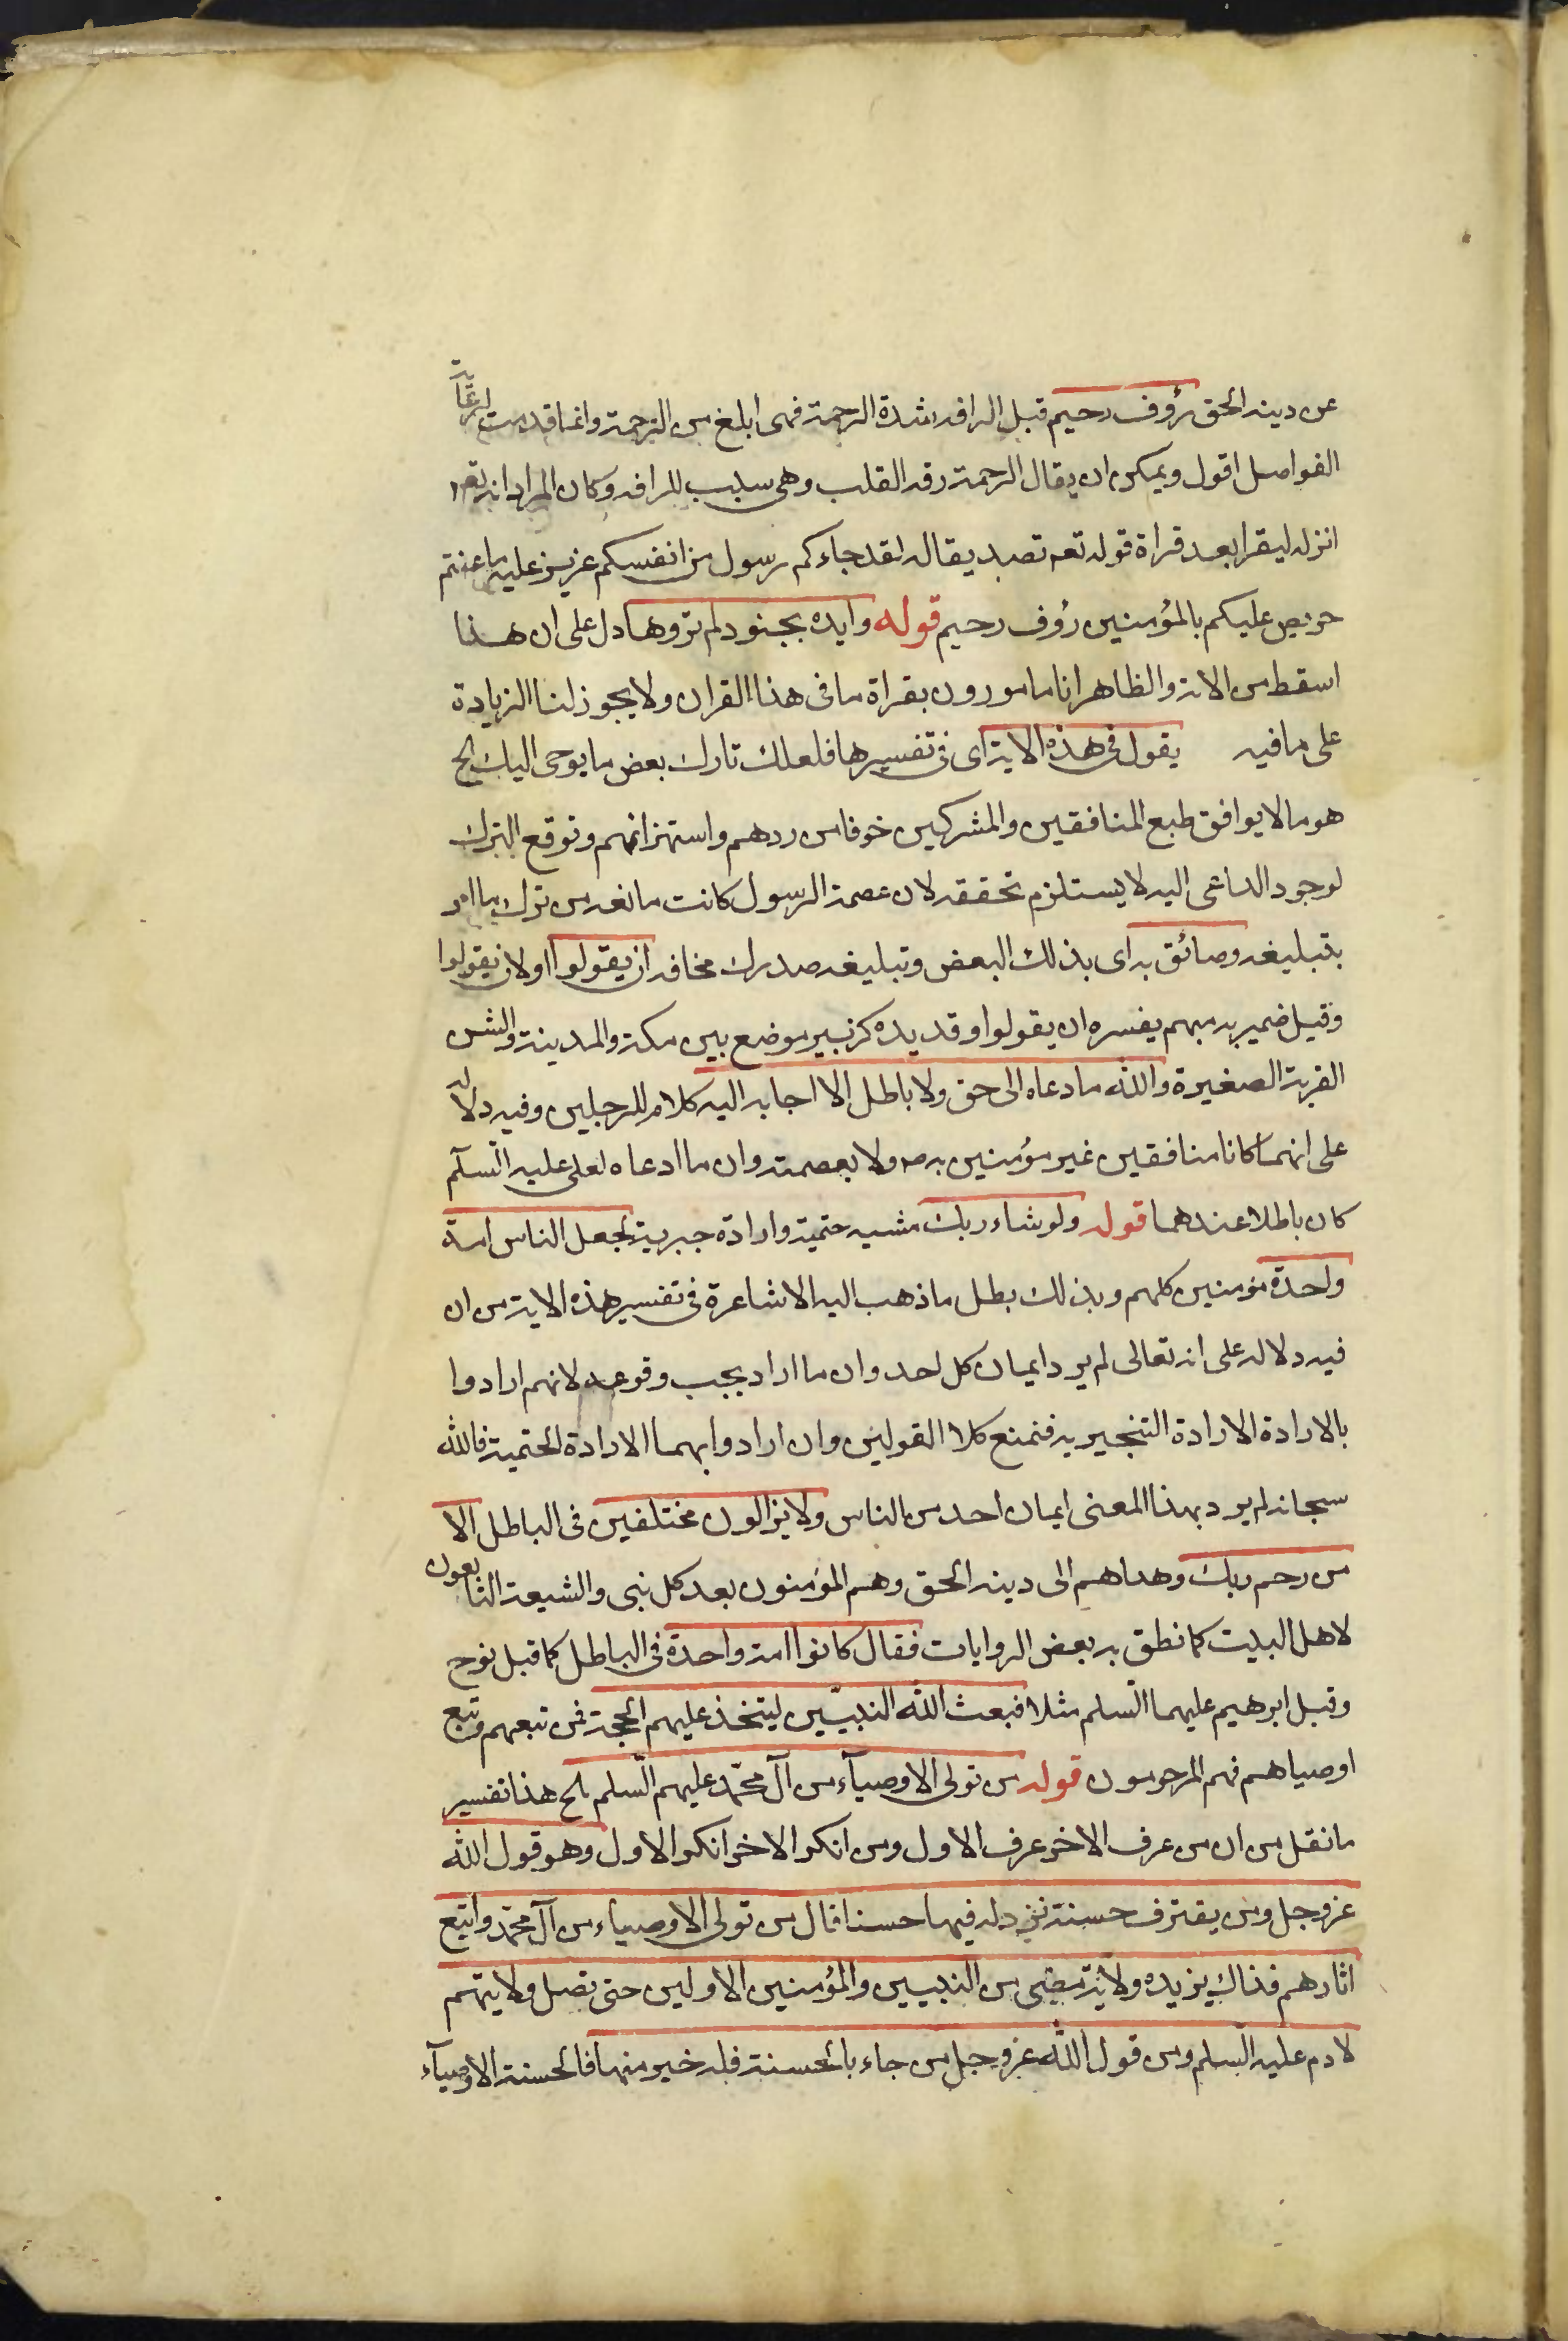 عن دينه الحق رؤوف رحيم قيل الرافه شدة الرحمة فهى ابلغ من الرحمة وانما قدمت لرعاية
الفواصل اقول ويمكن ان يقال الرحمة رقه القلب وهى سبب للرافه وكان المراد انه تعه
انزله ليقرا بعد قراة قوله تعه تصديقا له لقد جاءكم رسول من انفسكم عزيز عليه ما عنتم
حريص عليكم بالمؤمنين رؤف رحيم قوله وايده بجنود لم تروها دل على ان هذا
اسقط من الاية والظاهر انا مامورون بقراة ما فى هذا القران ولا يجوز لنا الزيادة
على ما فيه يقول فى هذه الاية اى فى تفسيرها فلعلك تارك بعض ما يوحى اليك الخ
هو ما لا يوافق طبع المنافقين والمشركين خوفا من ردهم واستهزائهم وتوقع الترك
لوجود الداعى اليه لا يستلزم تحققه لان عصمة الرسول كانت مانعه من ترك ما امر
بتبليغه وضائق به اى بذلك البعض وتبليغه صدرك مخافه ان يقولوا اولان يقولوا
وقيل ضمير به مبهم يفسره ان يقولوا وقديده كزبير موضع بين مكة والمدينة والشن
القربة الصغيرة والله ما دعاه الى حق ولا باطل الا اجابه اليه كلام للرجلين وفيه دلاله
على انهما كانا منافقين غير مؤمنين به ص ولا بعصمته وان ما ادعاه لعلى عليه السلم
كان باطلا عندهما قوله ولو شاء ربك مشيه حتمية وارادة جبرية لجعل الناس امة
واحدة مؤمنين كلهم وبذلك بطل ما ذهب اليه الاشاعرة فى تفسير هذه الاية من ان
فيه دلاله على انه تعالى لم يرد ايمان كل احد وان ما اراد يجب وقوعه لانهم ارادوا
بالارادة الارادة التخييريه فنمنع كلا القولين وان ارادوا بهما الارادة الحتمية فالله
سبحانه لم يرد بهذا المعنى ايمان احد من الناس ولا يزالون مختلفين فى الباطل الا
من رحم ربك وهداهم الى دينه الحق وهم المؤمنون بعد كل نبى والشيعة التابعون
لاهل البيت كما نطق به بعض الروايات فقال كانوا امة واحدة فى الباطل كما قبل نوح
وقبل ابرهيم عليهما السلم مثلا فبعث الله النبيين ليتخذ عليهم الحجة فمن تبعهم وتبع
اوصياهم فهم المرحومون قوله من تولى الاوصيآء من آل محمد عليهم السلم الخ هذا تفسير
ما نقل من ان من عرف الاخر عرف الاول ومن انكر الاخر انكر الاول وهو قول الله
عز وجل ومن يقترف حسنة نزد له فيها حسنا قال من تولى الاوصياء من آل محمد واتبع
اثارهم فذاك يزيده ولاية من مضى من النبيين والمؤمنين الاولين حتى تصل ولايتهم
لادم عليه السلم ومن قول الله عز وجل من جاء بالحسنة فله خير منها فالحسنة الاوصيآء